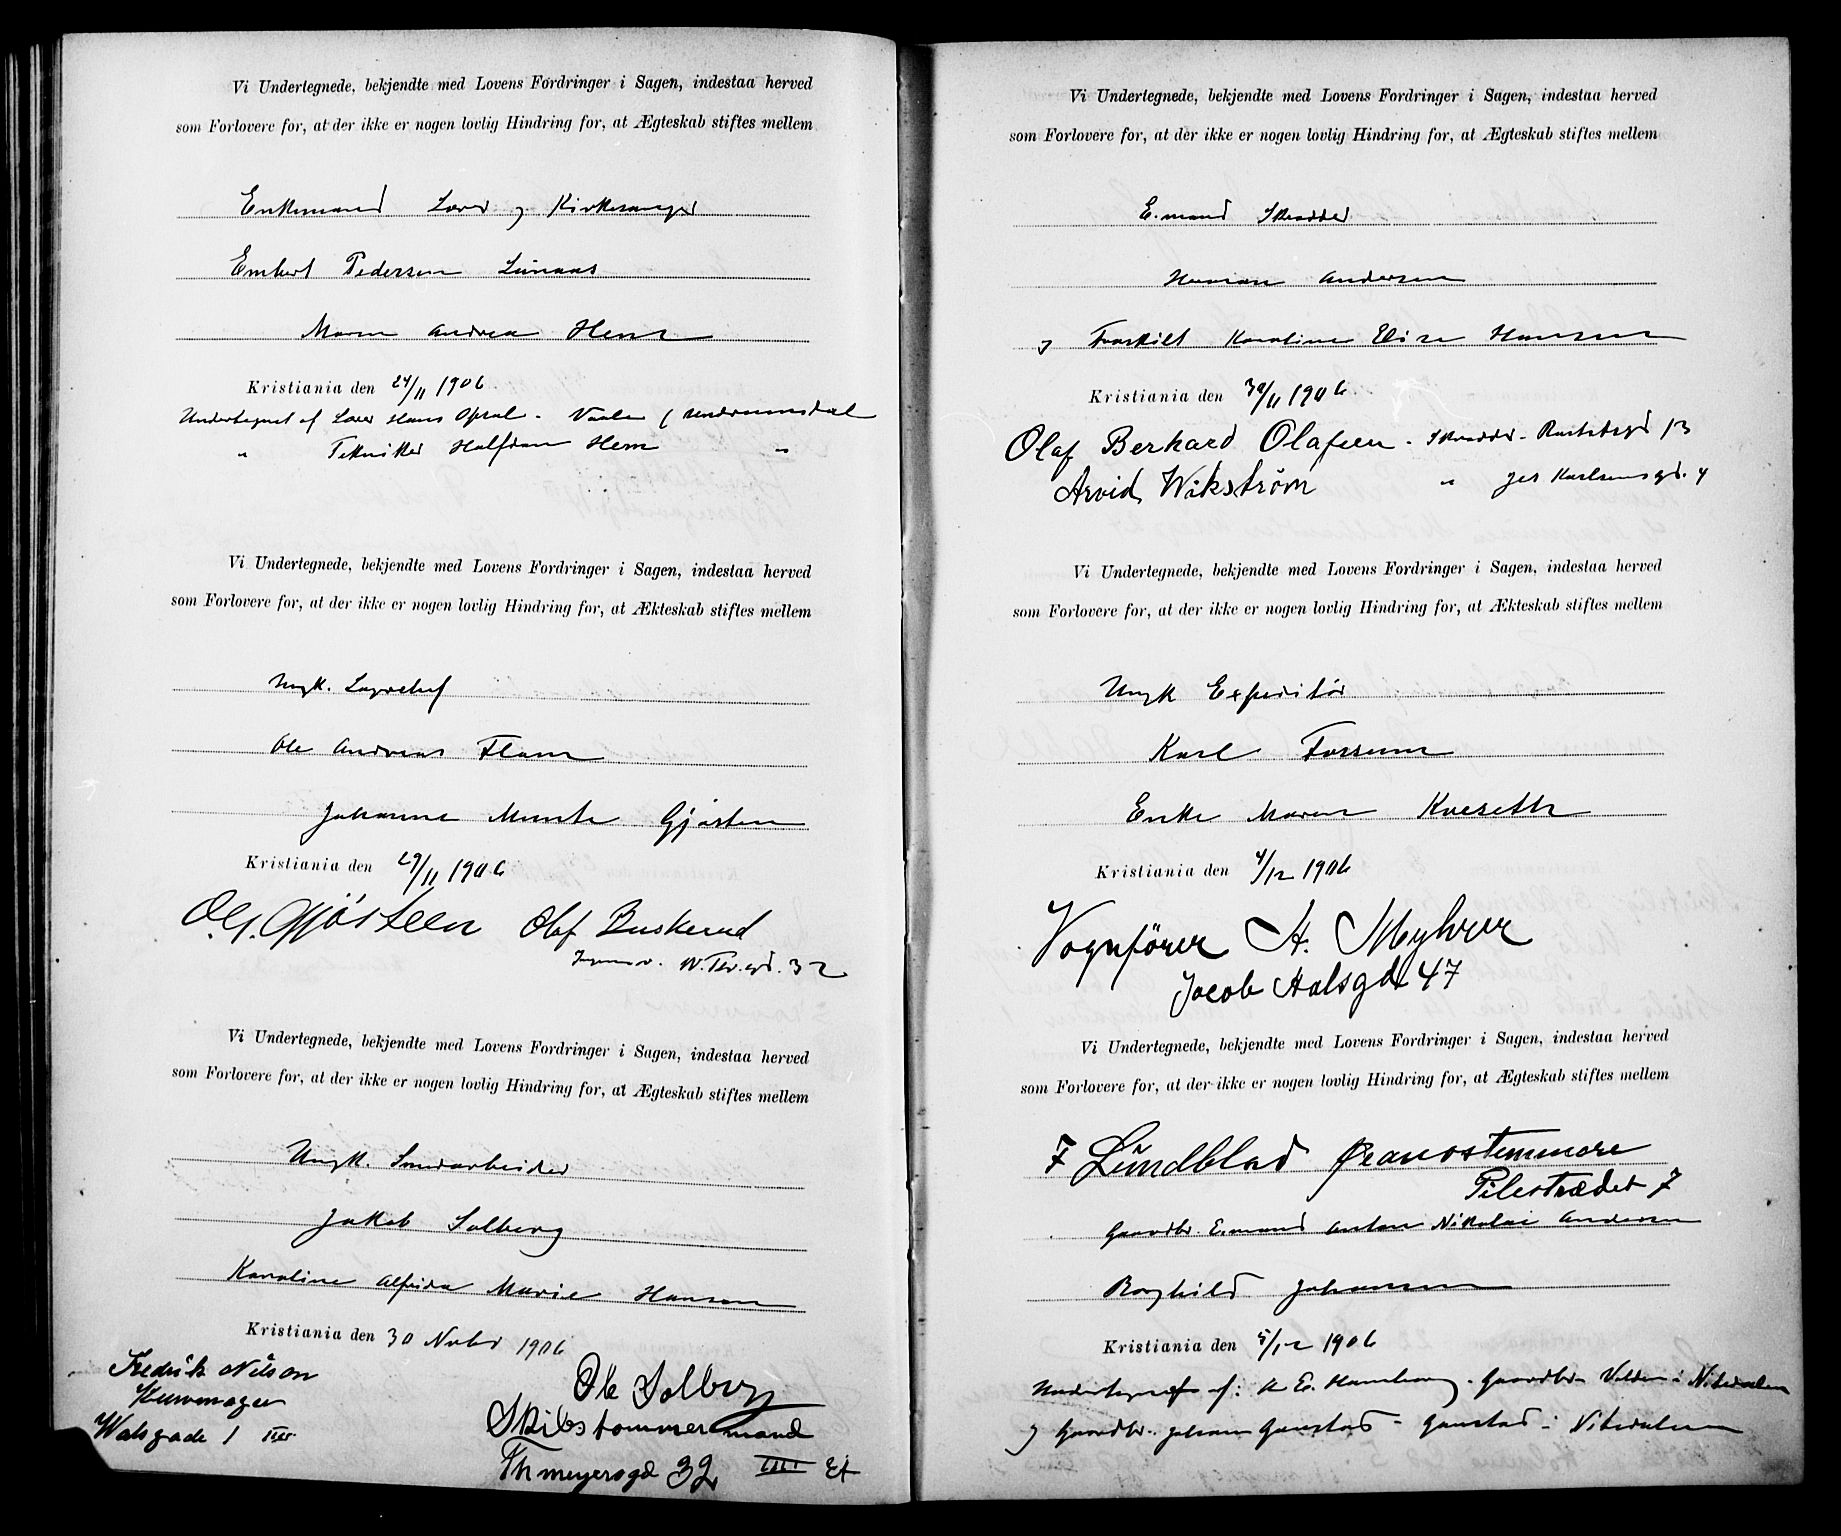 Vi Undertegnede, bekjendte med Lovens Fordringer i Sagen, indestaa herved
som Forlovere for, at der ikke er nogen lovlig Hindring for, at Ægteskab stiftes mellem
Enkemand Lærer og Kirkesanger
Embert Pedersen
Maren Andrea Hem
Kristiania den 24/11 1906
Undertegnet af Lærer Hans Opsal -
" Tekniker Halfdan Hem "
Vi Undertegnede, bekjendte med Lovens Fordringer i Sagen, indestaa herved
som Forlovere for, at der ikke er nogen lovlig Hindring for, at Ækteskab stiftes mellem
Ungk.
Ole Andreas Flom
Johanne Munte Gjøsten
Kristiania den 29/11 1906
O. G. Gjøsteen Olaf Buskerud
32
Vi Undertegnede, bekjendte med Lovens Fordringer i Sagen, indestaa herved
som Forlovere for, at der ikke er nogen lovlig Hindring for, at Ægteskab stiftes mellem
Ungk.
Jakob Solberg
Karoline Alfrida Marie Hansen
Kristiania den 30 Novbr 1906
Fredrik Nilson
Kurvmager
Walsgade 1
Ole Solberg
Skibstømmermand
Th meyersgd 32 III Et
Vi Undertegnede, bekjendte med Lovens Fordringer i Sagen, indestaa herved
som Forlovere for, at der ikke er nogen lovlig Hindring for, at Ægteskab stiftes mellem
E.mand Skrædder
Herman Andersen
og Fraskilt Karoline Elise Hansen
Kristiania den 30/11 1906
Olaf Berhard Olafsen - Skrædder - 13
Arvid Wikstrøm " Jes Karlsensgd. 4
Vi Undertegnede, bekjendte med Lovens Fordringer i Sagen, indestaa herved
som Forlovere for, at der ikke er nogen lovlig Hindring for, at Ækteskab stiftes mellem
Ungk Expeditør
Karl Fossum
Enke Maren Kveseth
Kristiania den 4/12 1906
Vognfører A. Myhrer
Jacob Aalsgd 47
Vi Undertegnede, bekjendte med Lovens Fordringer i Sagen, indestaa herved
som Forlovere for, at der ikke er nogen lovlig Hindring for, at Ægteskab stiftes mellem
F Lündblad Pianostemmere
Pilestrædet 7
Gaardbr. E.mand Anton Nikolai Andersen
Borghild Johansen
Kristiania den 5/12 1906
Undertegnet af: Gaardbr. i Nitedalen
og Gaardbr. Johan Gaustad - Gaustad i Nitedalen